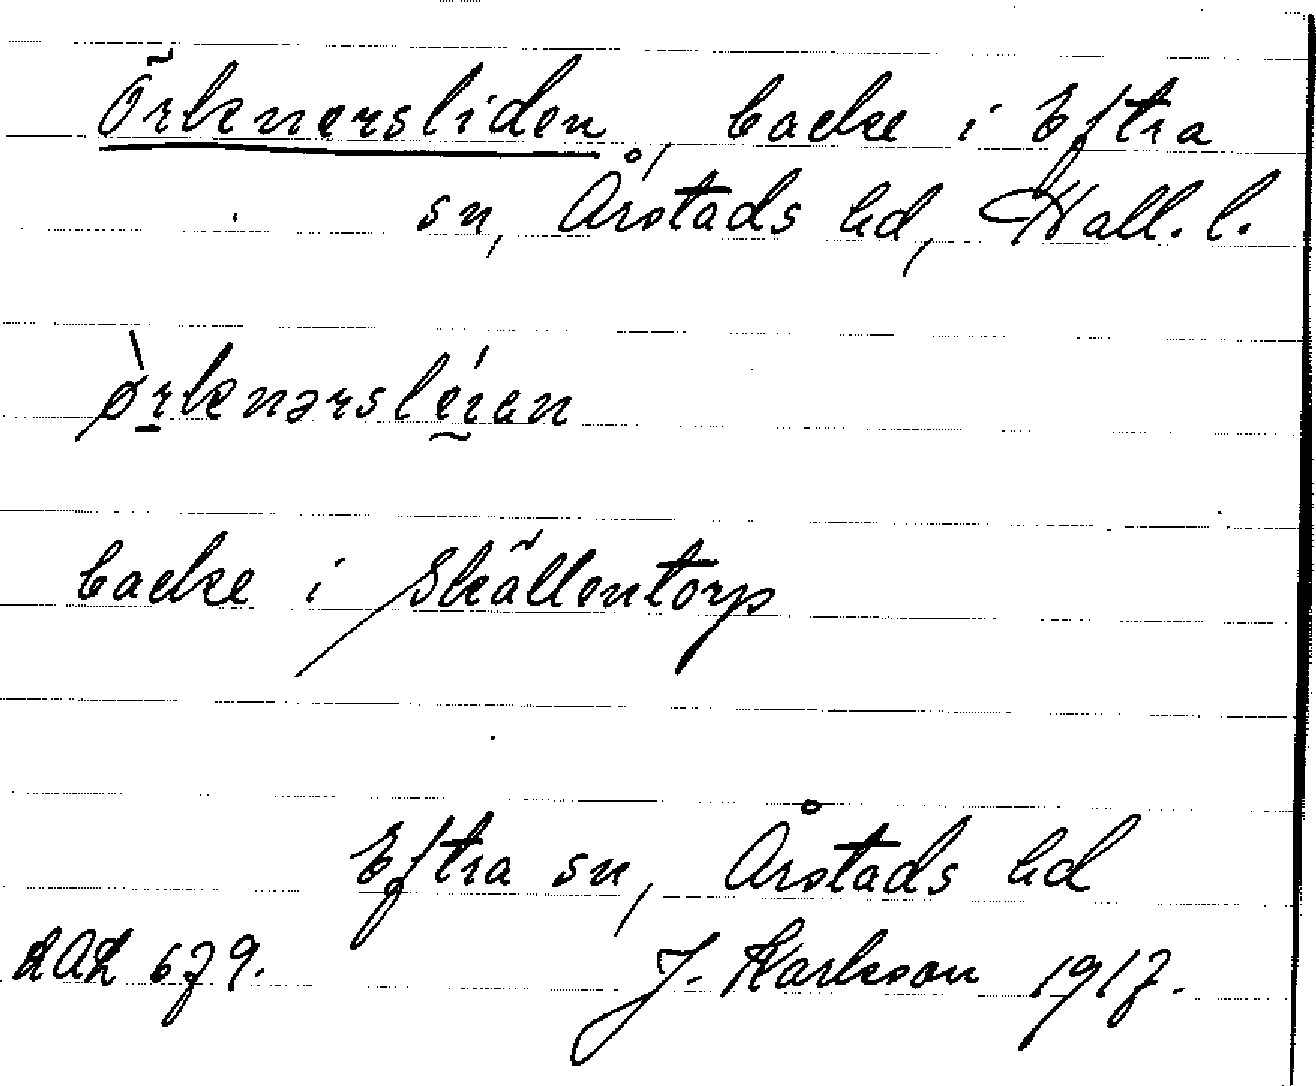 Örkenersliden, backe i Eftra
sn, Årstads hd, Hall. l.
ø̀rkenərsléɪ̰an
backe i Skällentorp
Eftra sn, Årstads hd
LAL 679. J. Karlsson 1917.